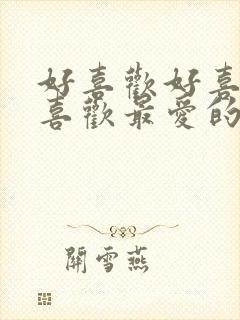 好喜歡好喜
喜歡最愛的
關雪燕